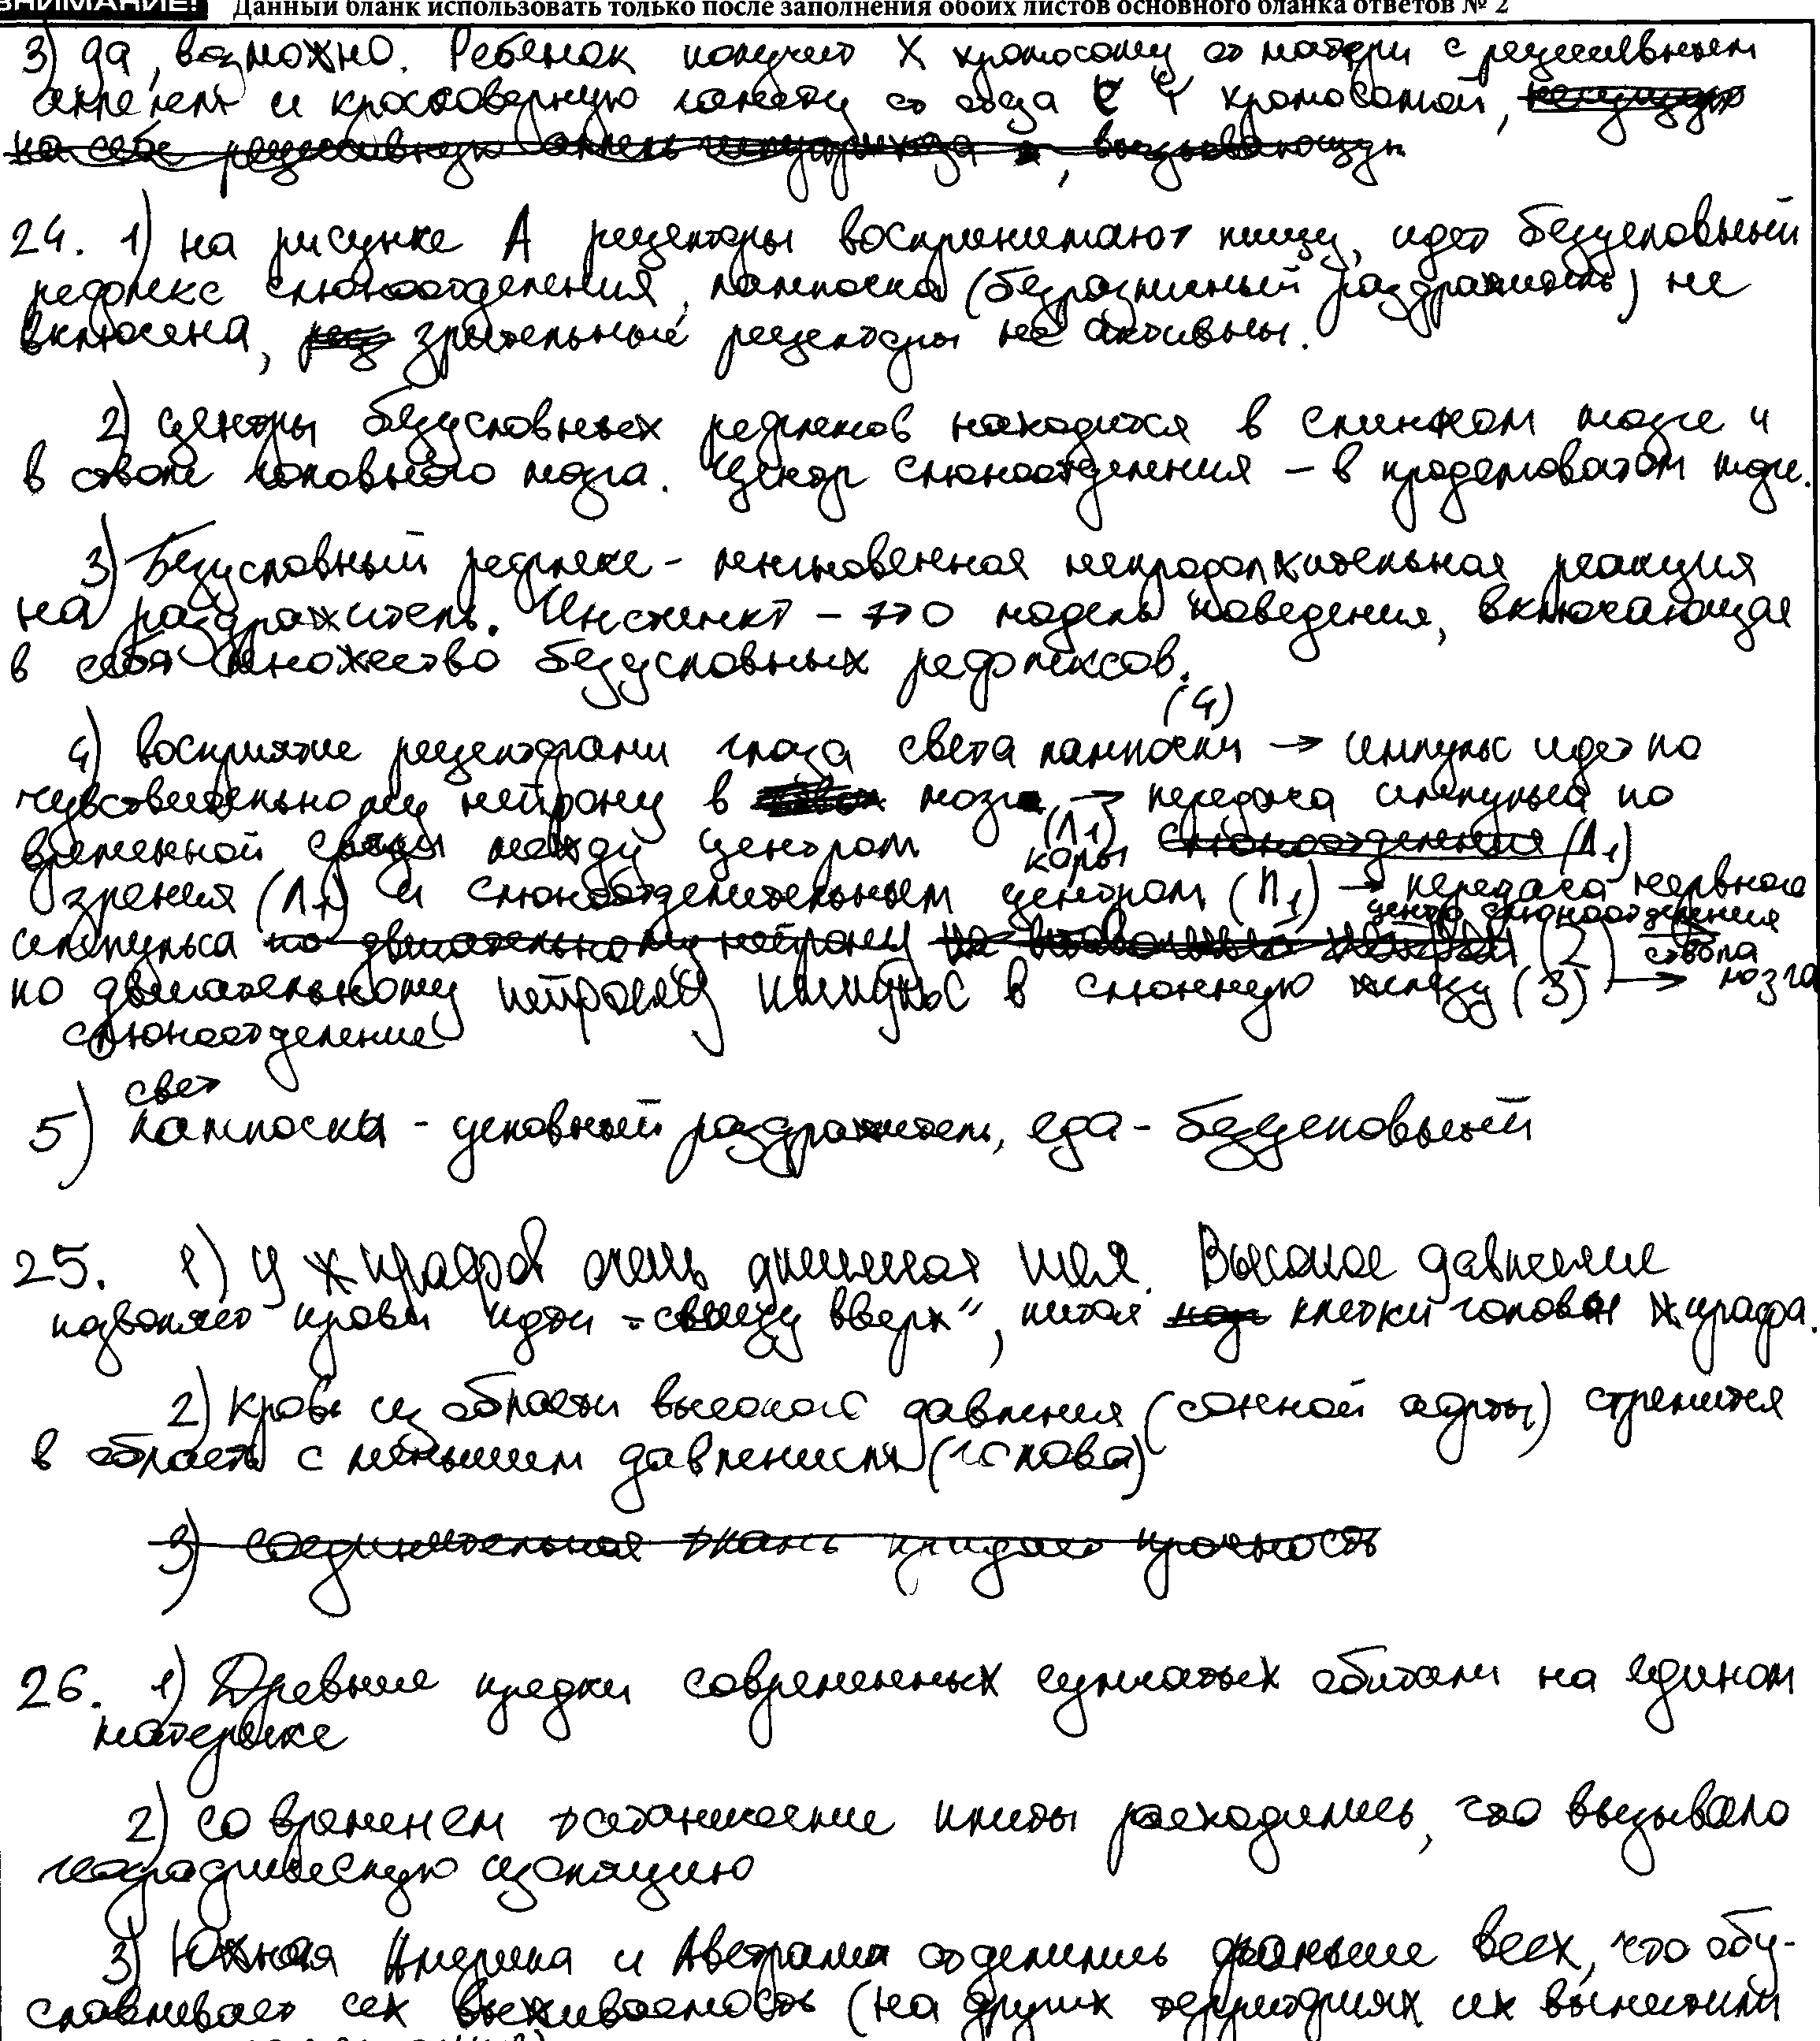 ВНИМАНИЕ! Данный бланк использовать только после заполнения обоих листов основного бланка ответов № 2
3) да, возможно. Ребенок получит X хромосому от матери с рецессивным
аллелем и кроссоверную гамету от отца с Y хромосомой, несущую
на себе рецессивную аллель , вызывающую
24. 1) на рисунке А рецепторы воспринимают пищу, идет безусловный
рефлекс слюноотделения, лампочка (безразличный раздражитель) не
включена, зрительные рецепторы не активны.
2) центры безусловных рефлексов находится в спинном мозге и
в стволе головного мозга. Центр слюноотделения – в продолговатом мозге.
3) Безусловный рефлекс - мгновенная непродолжительная реакция
на раздражитель. Инстинкт – это модель поведения, включающая
в себя множество безусловных рефлексов.
(4)
4) восприятие рецепторами глаза света лампочки → импульс идет по
чувствительному нейрону в мозг → передача импульса по
временной связи между центром коры (Л1) слюноотделения (Л1)
зрения (Л1) и слюноотделительным центром (П1) → передача нервного
центр слюноотделения
импульса по двигательному нейрону (2) ствола
по двигательному нейрону импульс в слюнную железу (3) → мозга
слюноотделение
свет
5) лампочки - условный раздражитель, еда - безусловный
25. 1) у жирафов очень длинная шея. Высокое давление
позволяет крови идти "снизу вверх", питая клетки головы жирафа.
2) кровь из области высокого давления (сонной аорты) стремится
в область с меньшим давлением (голова)
3) соединительная ткань придает прочность
26. 1) Древние предки современных сумчатых обитали на едином
материке
2) со временем тектонические плиты расходились, что вызывало
географическую изоляцию
3) Южная Америка и Австралия отделились раньше всех, что обу-
славливает их выживаемость (на других территориях их вытеснили